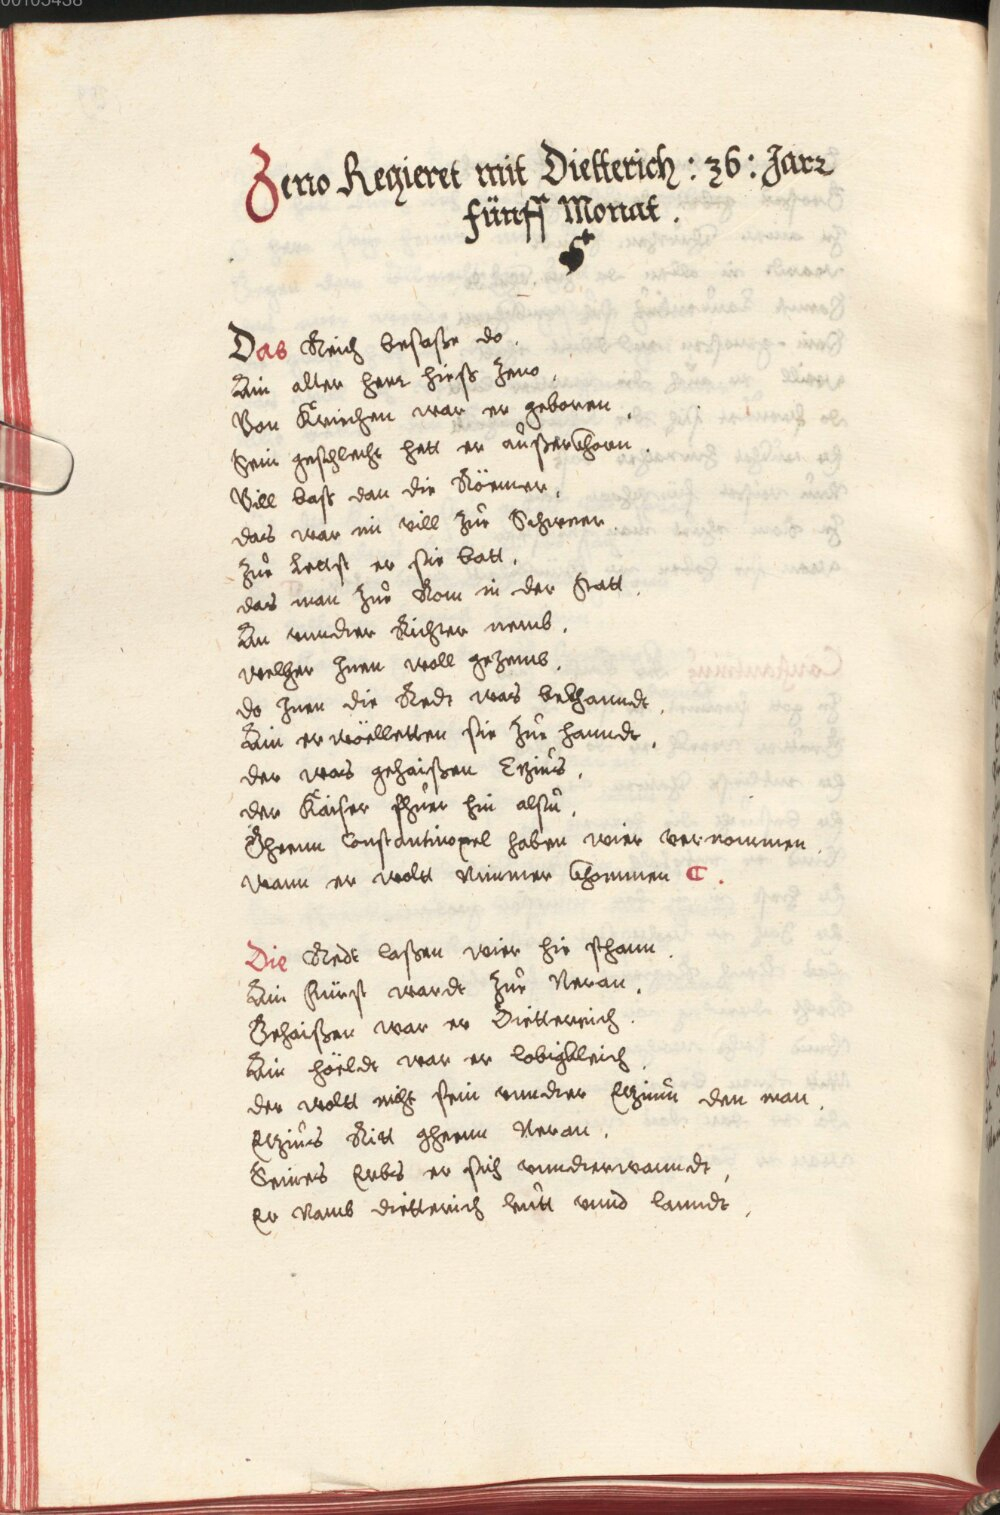 Zeno Regieret mit Dietterich: 36: Jarr
fünff Monat.
Das Reich besasße do.
Ain alter herr hieß Zeno.
Von Kriechen war er geboren.
Sein geschlecht hett er außerkhorn.
Vill baß dan die Röemer.
das war im vill Zur Schweer.
Zur Letzst er sie batt.
das man Zur Rom in der Statt.
An annder Richter nemb.
welher Inen woll gezemb.
do Inen die Redt was bekhanndt.
Ain erwöelletten sie Zur hanndt.
der was gehaißen Etzius.
der Kaiser fhuer hin alsu.
Gheenn Constantinopel haben wier vernommen.
wann er wolt Nimmer khommen C.
Die Redt laßen wier hie sthann.
Ain Fürst wardt Zur Meran.
Gehaißen war er Dietterrich.
Ain höeldt war er lobigkleich.
der woltt nicht sein annder Etzium den man.
Etzius Ritt gheenn Meran.
Seines Erbs er sich vnnderwanndt.
Er Namb dietterich leutt vnnd lanndt.